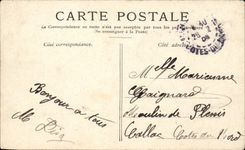 CARTE POSTALE
La Correspondance au recto n'est pas acceptée par tous les pays
(Se renseigner à la Poste)
Côté correspondance.
Côté adresse.
Bonjour à tous
M
Melle Marieanne
Gaignard
Moulin de Plenis
Callac Côtes du Nord